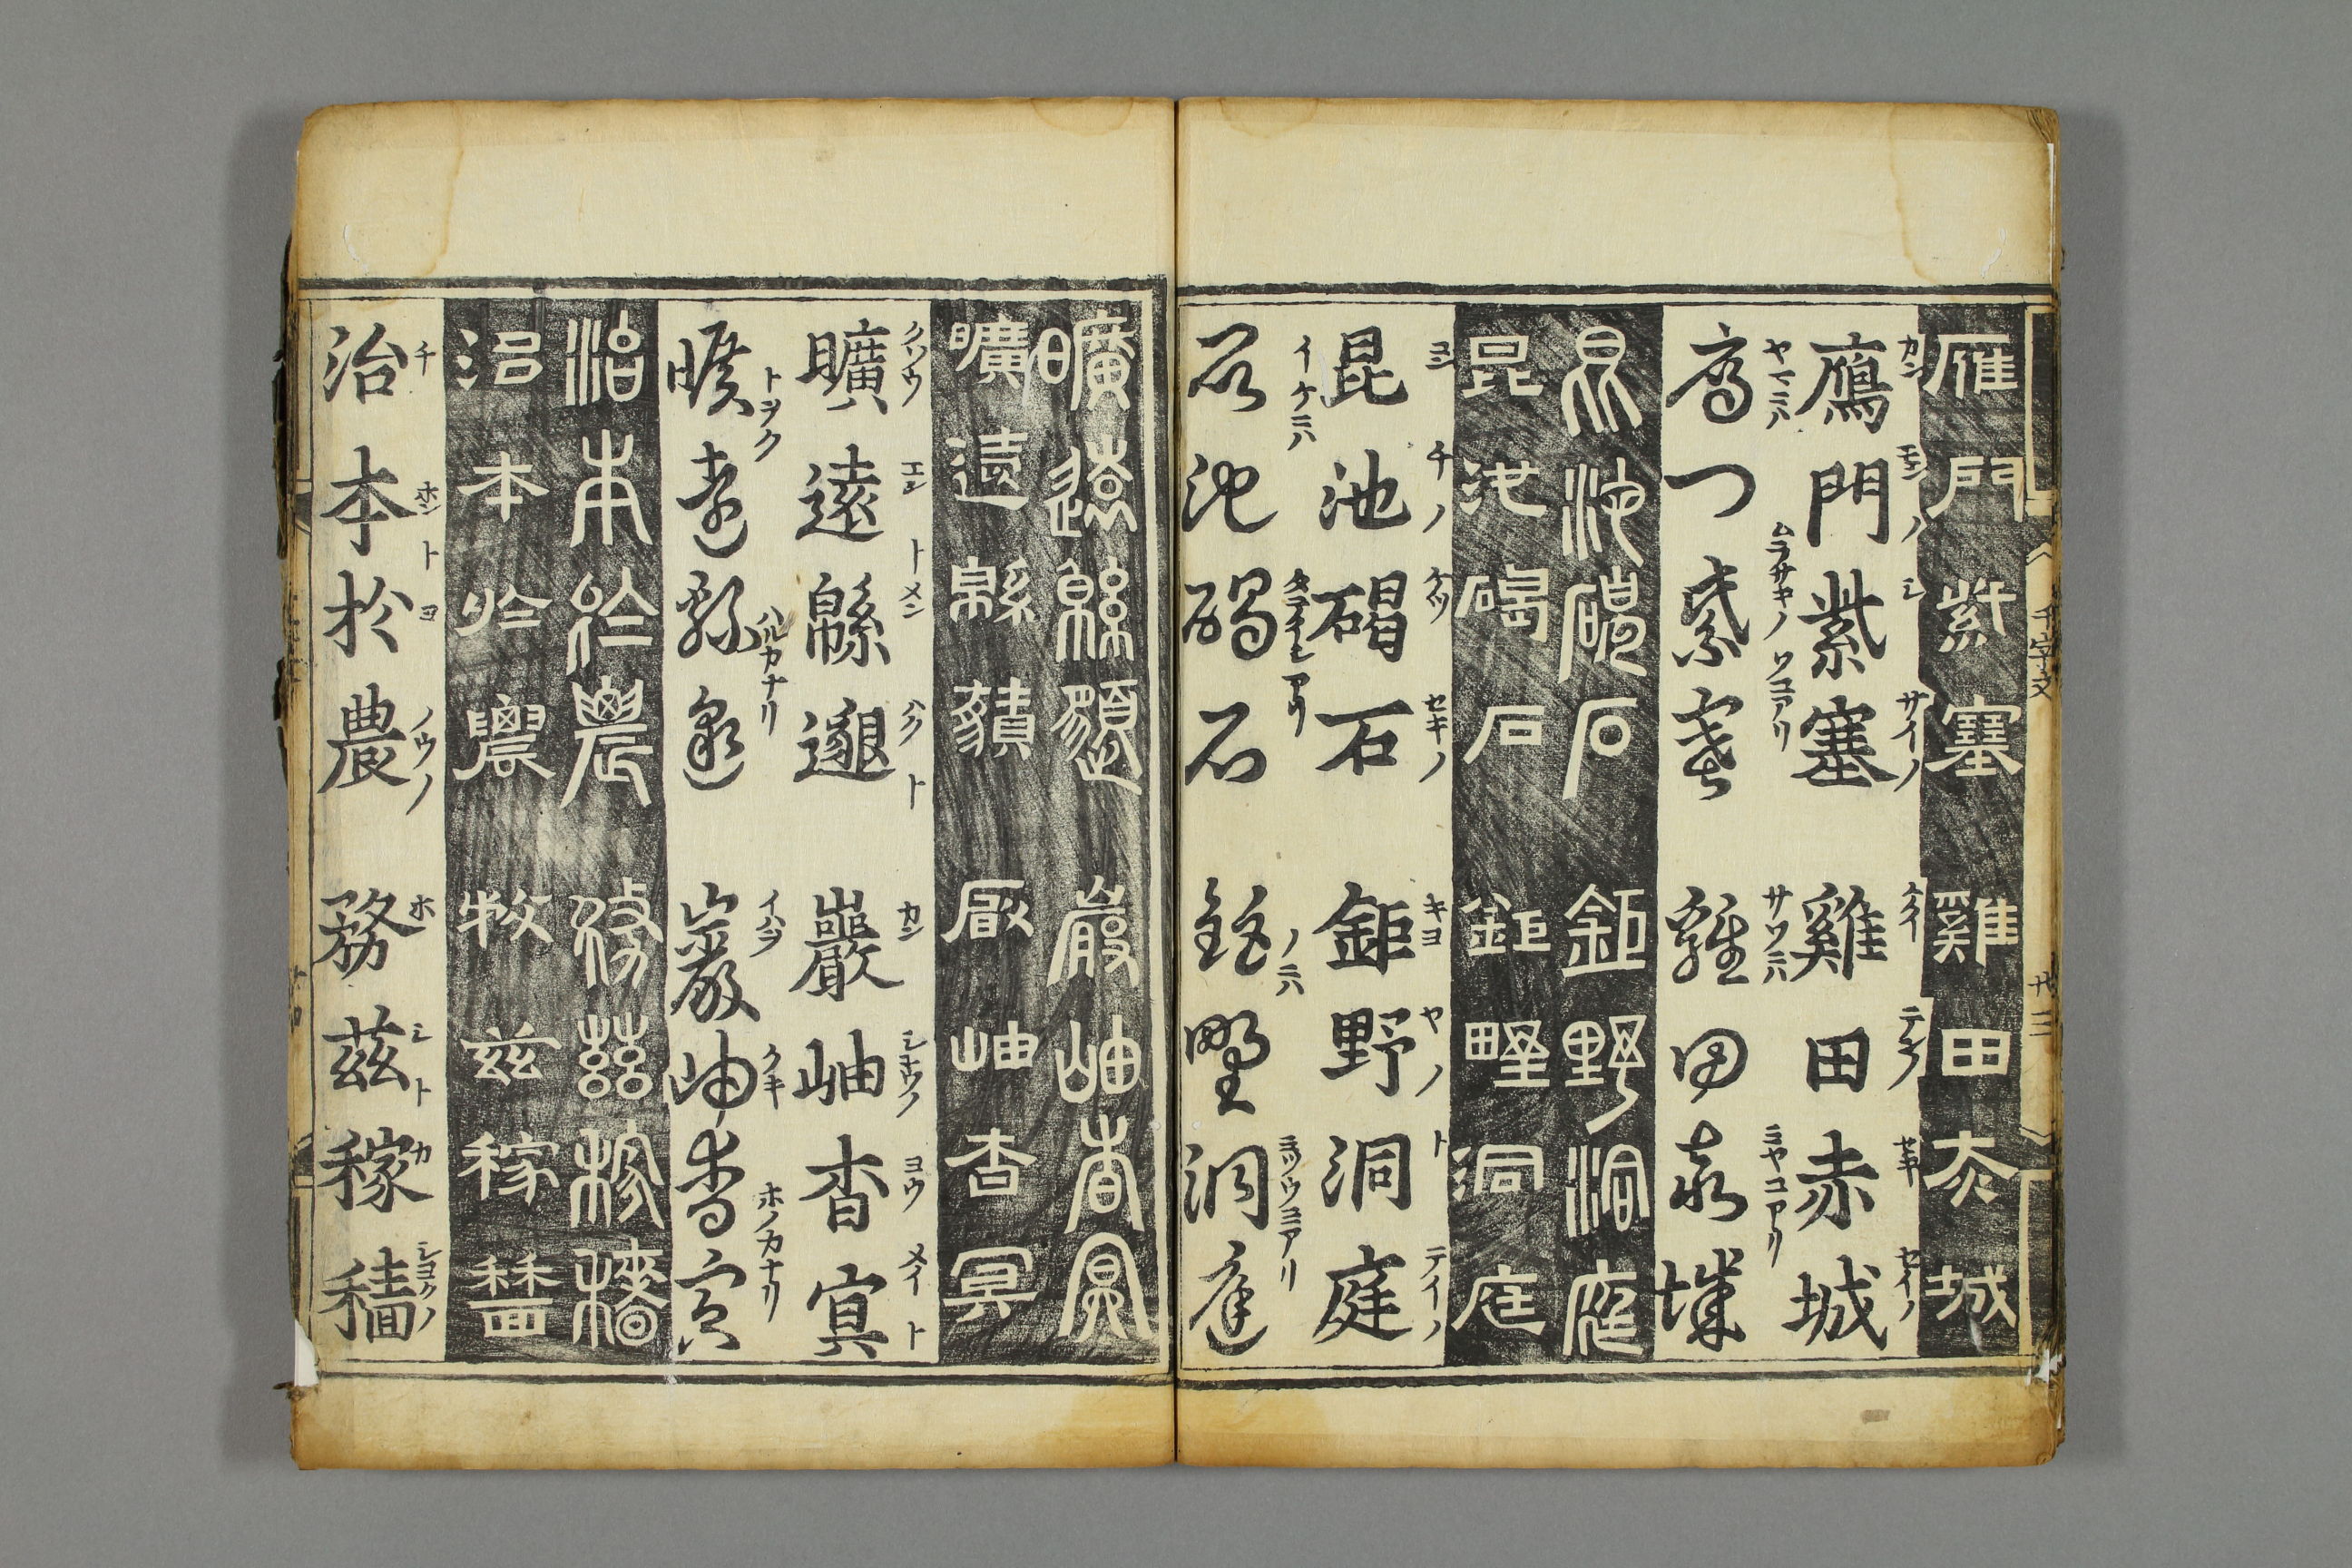 千字文
廿三
雁門紫塞 雞田赤城
カン モンノ シ サイノ ケイ テンノ セキ セイノ
鴈門紫塞 雞田赤城
ヤマニハ ムラサキノソコアリ サワニハ ミヤコアリ
鴈門紫塞 雞田赤城
昆池碣石 鉅野洞庭
昆池碣石 鉅野洞庭
コン チノ ケツ セキノ キヨ ヤノ ト テイノ
昆池碣石 鉅野洞庭
イケニハ ノニハ ミツウミアリ
昆池碣石 鉅野洞庭
曠遠緜邈 巖岫杳冥
曠遠緜邈 巖岫杳冥
クハウ エント メン ハクト カン シウノ ヨウ メイト
曠遠緜邈 巖岫杳冥
トヲク ハルカナリ イハヲ クキ ホノカナリ
曠遠緜邈 巖岫杳冥
治本於農 務茲稼穡
治本於農 務茲稼穡
チ ホント ヨ ノウノ ホ シト カ シヨクノ
治本於農 務茲稼穡